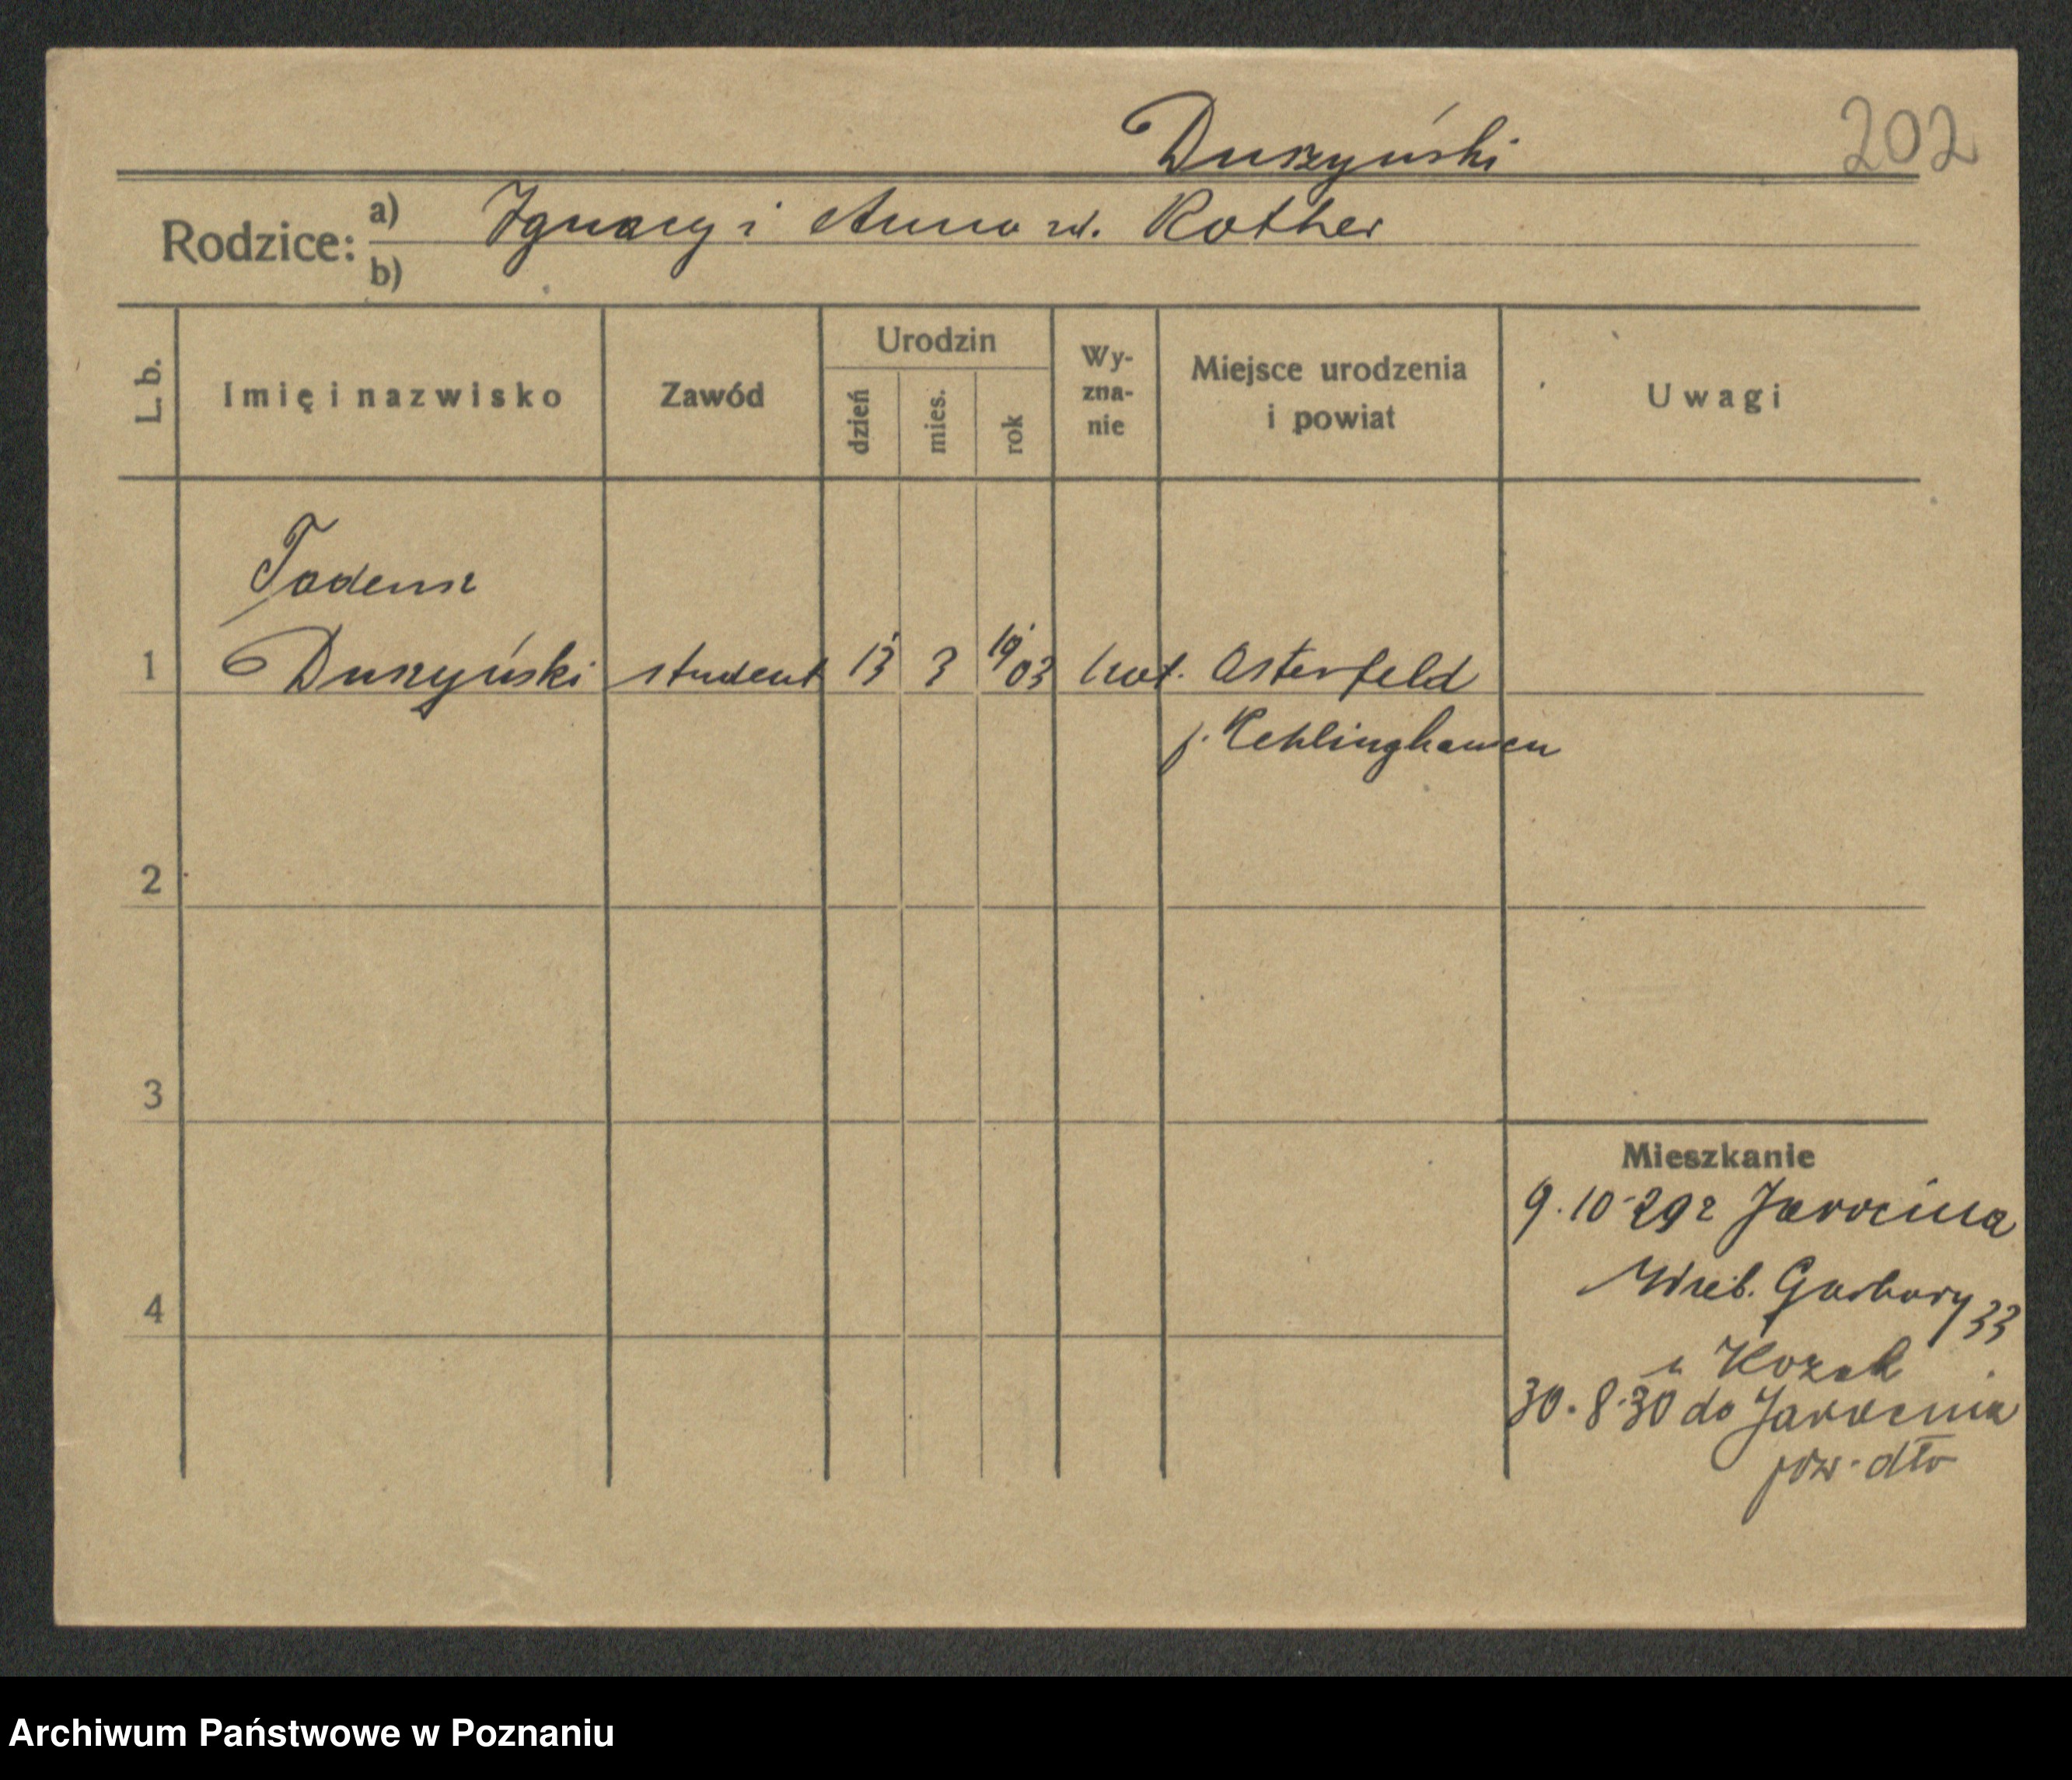 Duszyński 202
Rodzice: a) Ignacy i Anna zd. Rother
b)
L. b. Imię i nazwisko Zawód Urodzin dzień mies. rok Wy-zna-nie Miejsce urodzenia i powiat Uwagi
Tadeusz
1 Duszyński student 13 3 19/03 kat. Osterfeld
p. Reklinghausen
2
3
Mieszkanie
9.10.29 z Jarocina
Garbary 33
4
u Kozak
30.8.30 do Jarocina
pow. dto
Archiwum Państwowe w Poznaniu